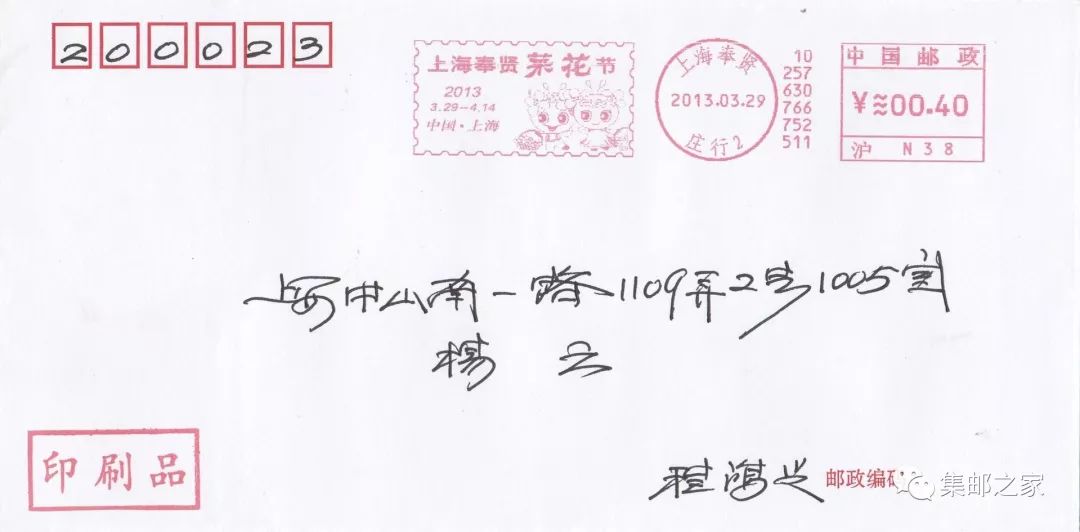 200023
上海奉贤 菜花节
2013
3.29-4.14
中国·上海
上海奉贤
2013.03.29
庄行2
10
257
630
766
752
511
中国邮政
¥≈00.40
沪 N38
上海中山南一路1109弄2号1005室
杨云
印刷品
程鸿兴
邮政编码
集邮之家